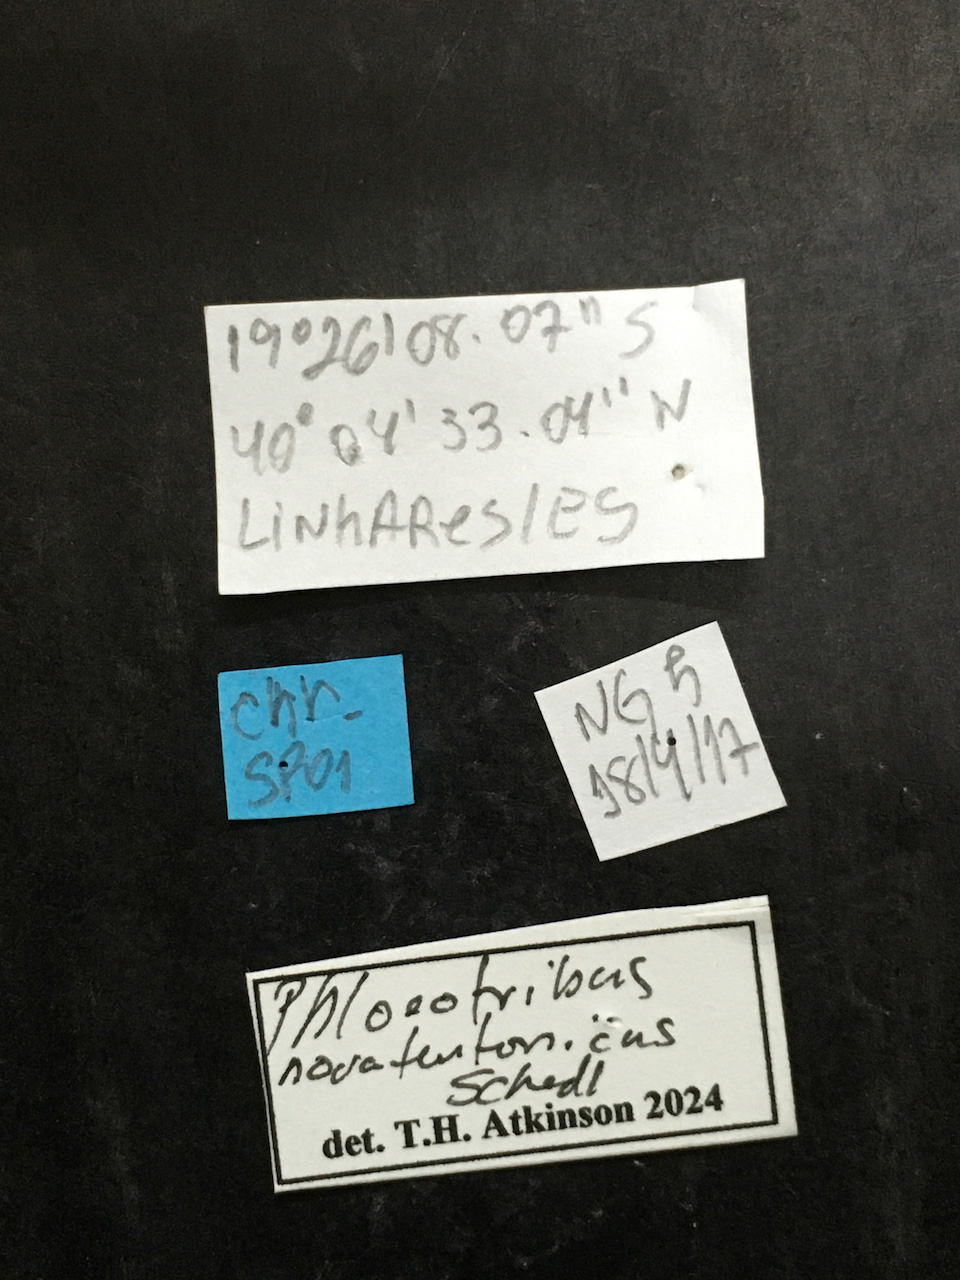 19°26'08.07" S
40°04'33.04" N
LiNhAReS/ES
Chr.
SP.01
NG 5
18/4/17
Phloeotribus
novateutonicus
Schedl
det. T.H. Atkinson 2024